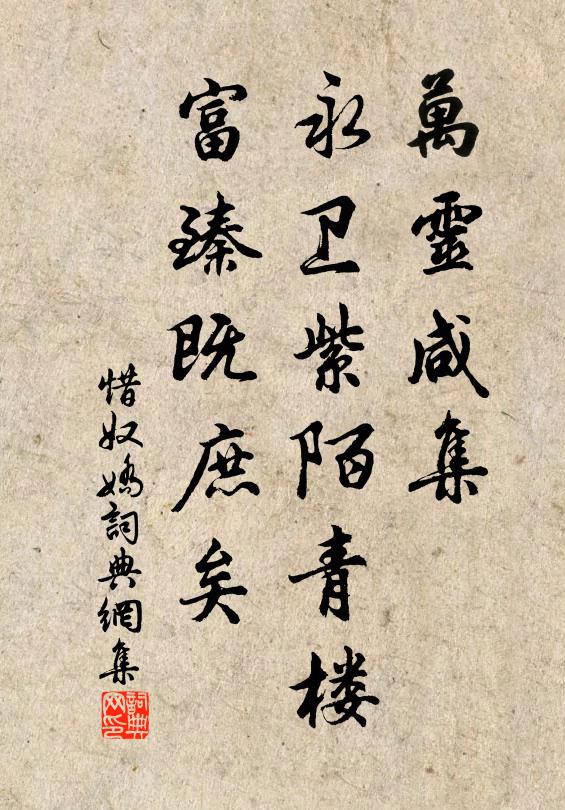 萬靈咸集
永卫紫陌青楼
富臻既庶矣
惜奴嬌詞典網集
詞典网印